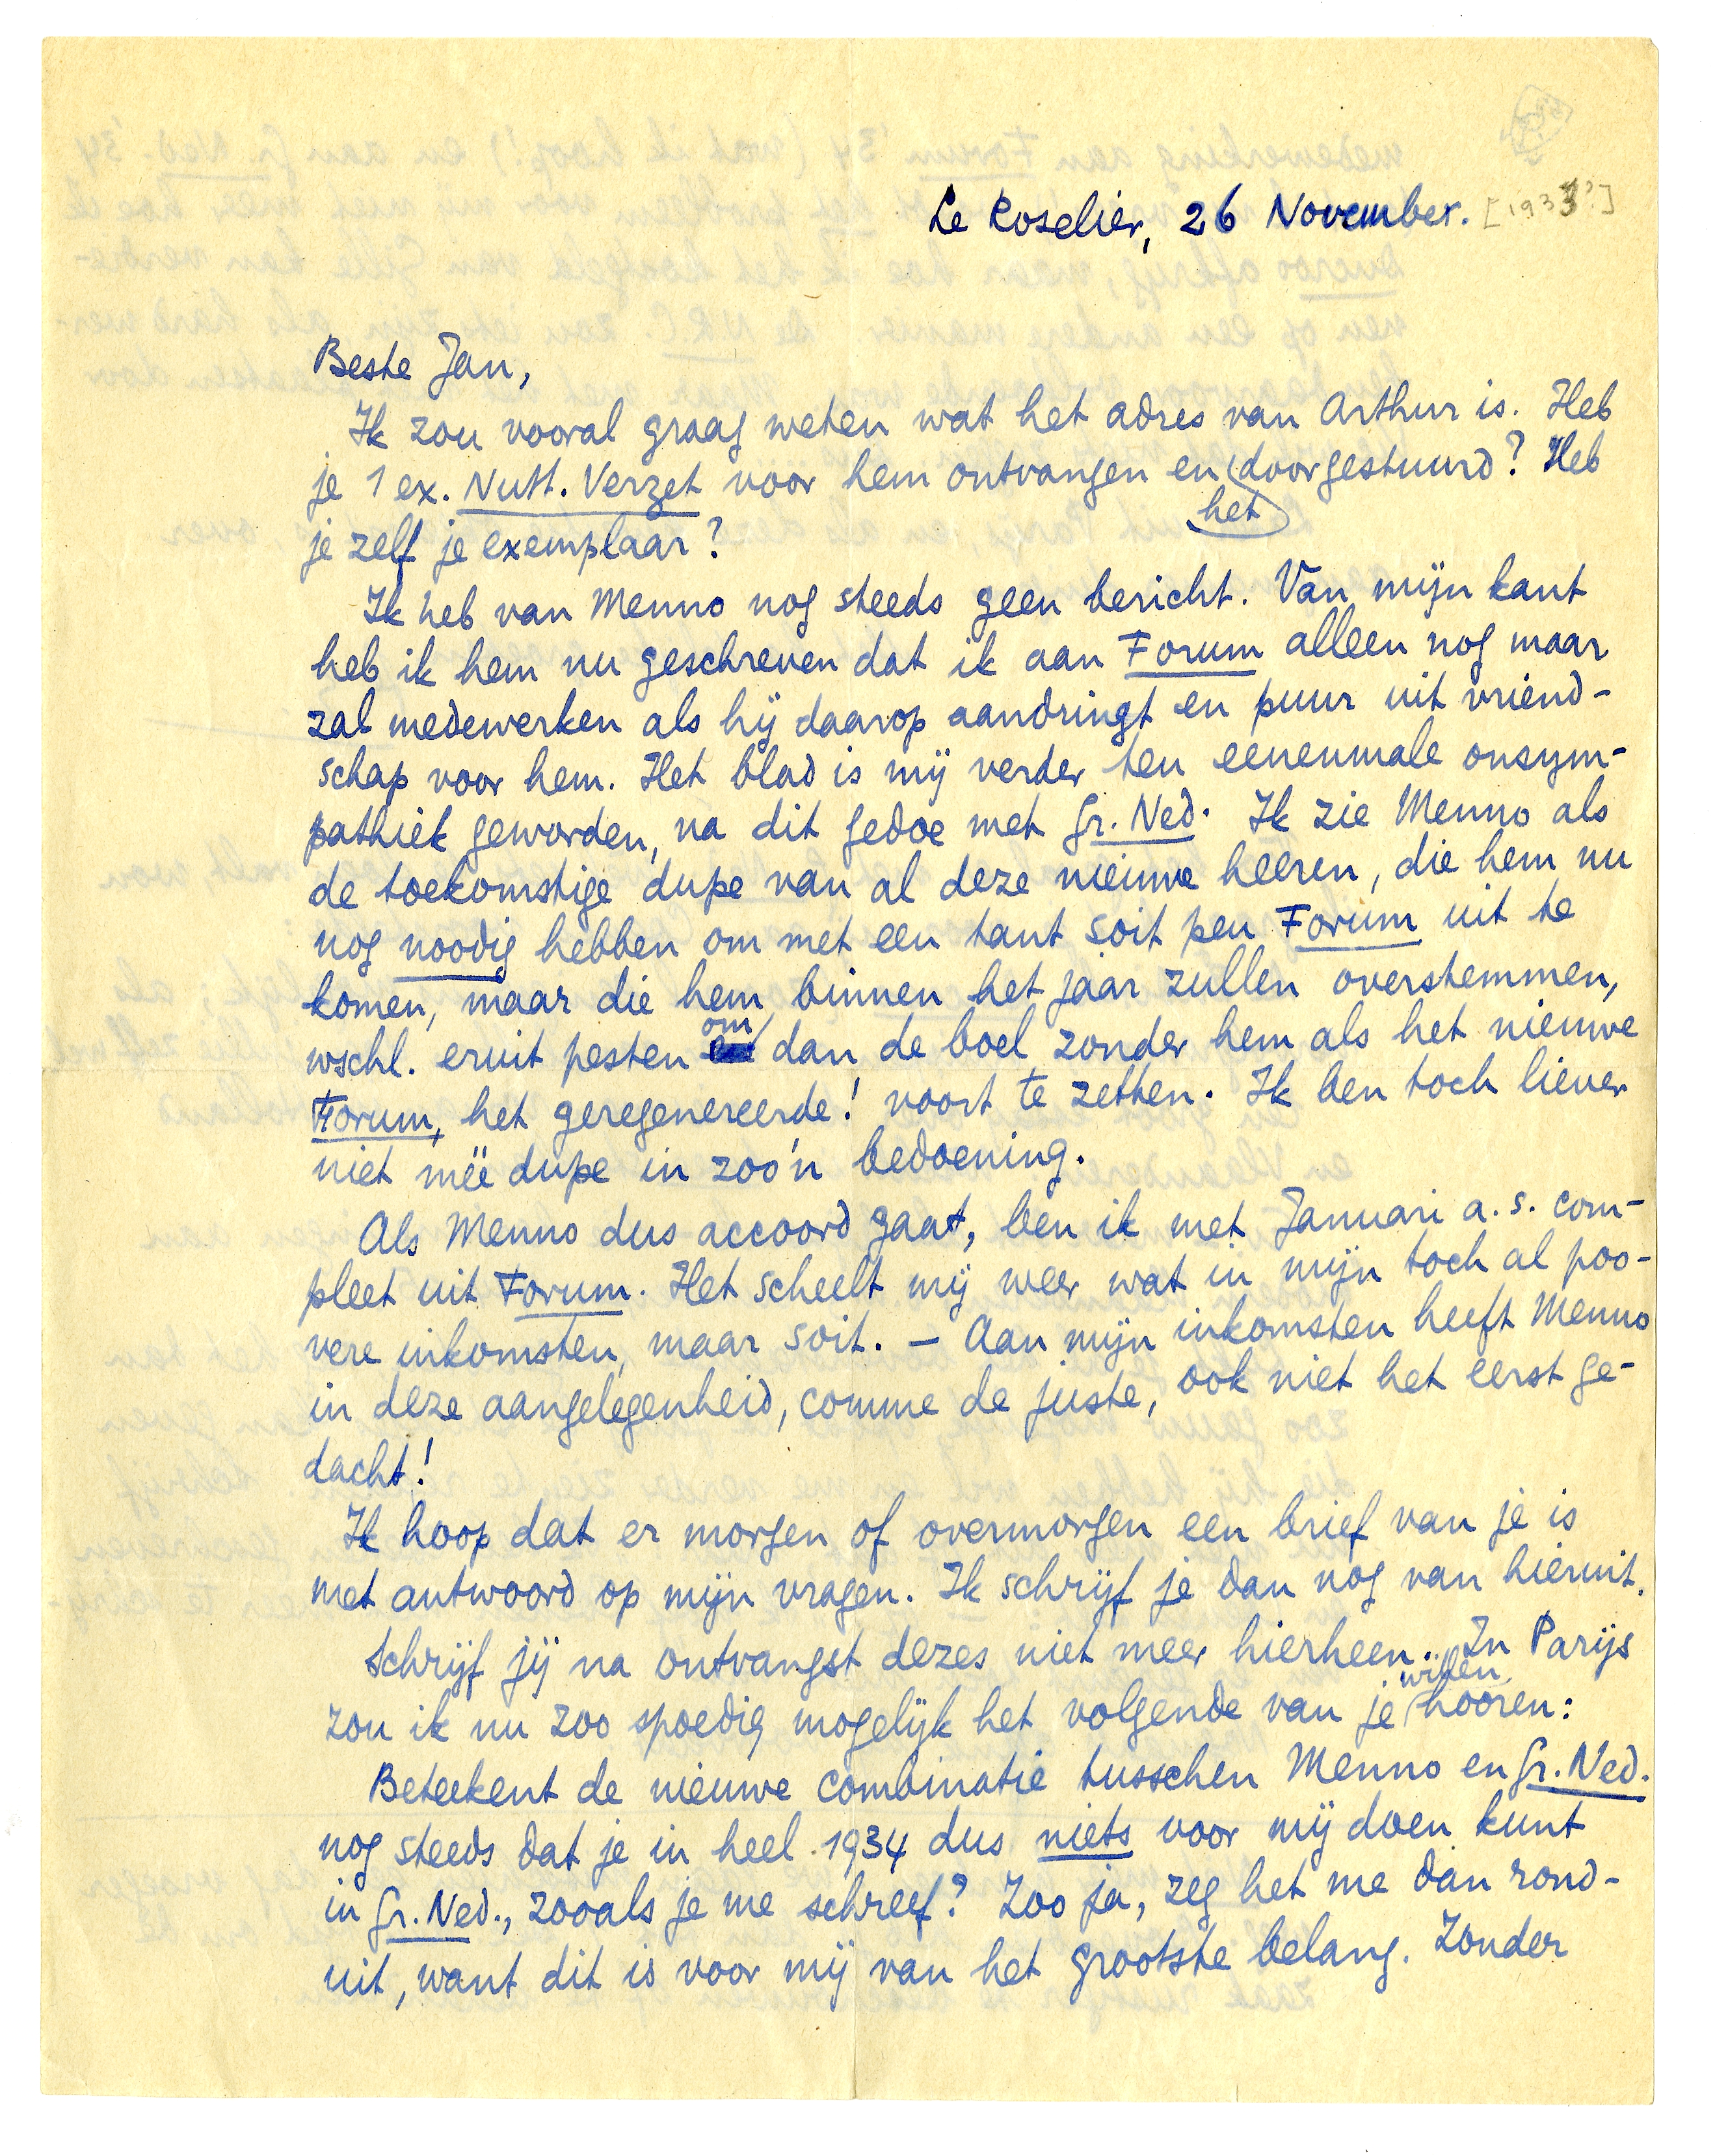 Le Roselier, 26 November. [1933?]
Beste Jan,
Ik zou vooral graag weten wat het adres van Arthur is. Heb
je 1 ex. Nutt. Verzet voor hem ontvangen en het doorgestuurd? Heb
je zelf je exemplaar?
Ik heb van Menno nog steeds geen bericht. Van mijn kant
heb ik hem nu geschreven dat ik aan Forum alleen nog maar
zal medewerken als hij daarop aandringt en puur uit vriend-
schap voor hem. Het blad is mij verder ten eenenmale onsym-
pathiek geworden, na dit gedoe met Gr. Ned. Ik zie Menno als
de toekomstige dupe van al deze nieuwe heeren, die hem nu
nog noodig hebben om met een tant soit peu Forum uit te
komen, maar die hem binnen het jaar zullen overstemmen,
wschl. eruit pesten om dan de boel zonder hem als het nieuwe
Forum, het geregenereerde! voort te zetten. Ik ben toch liever
niet mëe dupe in zoo'n bedoening.
Als Menno dus accoord gaat, ben ik met Januari a.s. com-
pleet uit Forum. Het scheelt mij weer wat in mijn toch al poo-
vere inkomsten, maar soit. — Aan mijn inkomsten heeft Menno
in deze aangelegenheid, comme de juste, ook niet het eerst ge-
dacht!
Ik hoop dat er morgen of overmorgen een brief van je is
met antwoord op mijn vragen. Ik schrijf je dan nog van hieruit.
Schrijf jij na ontvangst dezes niet meer hierheen. In Parijs
zou ik nu zoo spoedig mogelijk het volgende van je willen hooren:
Beteekent de nieuwe combinatie tusschen Menno en Gr. Ned.
nog steeds dat je in heel 1934 dus niets voor mij doen kunt
in Gr. Ned., zooals je me schreef? Zoo ja, zeg het me dan rond-
uit, want dit is voor mij van het grootste belang. Zonder